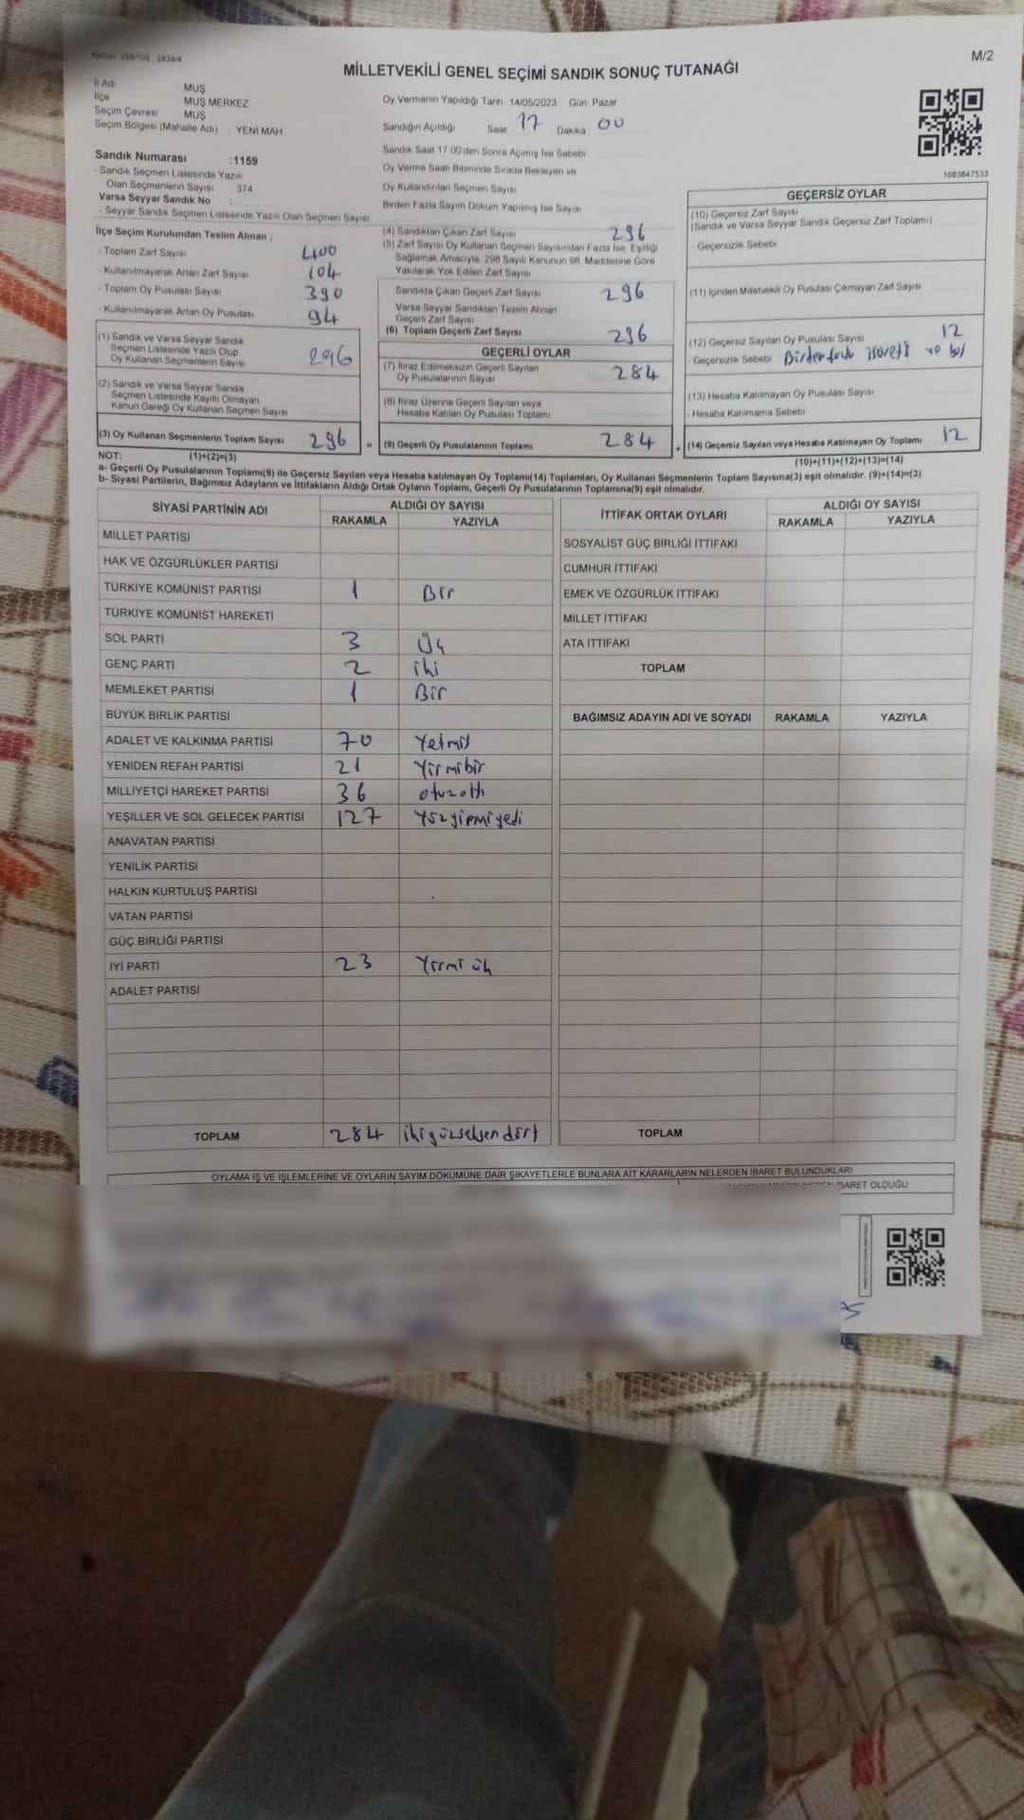 M/2
MİLLETVEKİLİ GENEL SEÇİMİ SANDIK SONUÇ TUTANAĞI
İl Adı MUŞ
İlçe MUŞ MERKEZ
Seçim Çevresi MUŞ
Seçim Bölgesi (Mahalle Adı) YENİ MAH
Oy Vermenin Yapıldığı Tarih 14/05/2023 Gün: Pazar
Sandığın Açıldığı Saat 17 Dakika 00
Sandık Saat 17.00'den Sonra Açılmış İse Sebebi
Oy Verme Saati Bitiminde Sırada Bekleyen ve
Oy Kullandırılan Seçmen Sayısı
Birden Fazla Sayım Döküm Yapılmış İse Sayısı
1083847533
Sandık Numarası :1159
- Sandık Seçmen Listesinde Yazılı
Olan Seçmenlerin Sayısı 374
Varsa Seyyar Sandık No :
- Seyyar Sandık Seçmen Listesinde Yazılı Olan Seçmen Sayısı:
İlçe Seçim Kurulundan Teslim Alınan ;
- Toplam Zarf Sayısı 400
- Kullanılmayarak Artan Zarf Sayısı 104
- Toplam Oy Pusulası Sayısı 390
- Kullanılmayarak Artan Oy Pusulası 94
(1) Sandık ve Varsa Seyyar Sandık
Seçmen Listesinde Yazılı Olup
Oy Kullanan Seçmenlerin Sayısı 296
(2) Sandık ve Varsa Seyyar Sandık
Seçmen Listesinde Kayıtlı Olmayan
Kanun Gereği Oy Kullanan Seçmen Sayısı
(3) Oy Kullanan Seçmenlerin Toplam Sayısı 296
(4) Sandıktan Çıkan Zarf Sayısı 296
(5) Zarf Sayısı Oy Kullanan Seçmen Sayısından Fazla İse, Eşitliği
Sağlamak Amacıyla, 298 Sayılı Kanunun 98. Maddesine Göre
Yakılarak Yok Edilen Zarf Sayısı
Sandıkta Çıkan Geçerli Zarf Sayısı 296
Varsa Seyyar Sandıktan Teslim Alınan
Geçerli Zarf Sayısı
(6) Toplam Geçerli Zarf Sayısı 296
GEÇERLİ OYLAR
(7) İtiraz Edilmeksizin Geçerli Sayılan
Oy Pusulalarının Sayısı 284
(8) İtiraz Üzerine Geçerli Sayılan veya
Hesaba Katılan Oy Pusulası Toplamı
= (9) Geçerli Oy Pusulalarının Toplamı 284
GEÇERSİZ OYLAR
(10) Geçersiz Zarf Sayısı
(Sandık ve Varsa Seyyar Sandık Geçersiz Zarf Toplamı)
- Geçersizlik Sebebi
(11) İçinden Milletvekili Oy Pusulası Çıkmayan Zarf Sayısı
(12) Geçersiz Sayılan Oy Pusulası Sayısı 12
- Geçersizlik Sebebi Birden fazla
(13) Hesaba Katılmayan Oy Pusulası Sayısı
- Hesaba Katılmama Sebebi
+ (14) Geçersiz Sayılan veya Hesaba Katılmayan Oy Toplamı 12
NOT: (1)+(2)=(3) (10)+(11)+(12)+(13)=(14)
a- Geçerli Oy Pusulalarının Toplamı(9) ile Geçersiz Sayılan veya Hesaba katılmayan Oy Toplamı(14) Toplamları, Oy Kullanan Seçmenlerin Toplam Sayısına(3) eşit olmalıdır. (9)+(14)=(3)
b- Siyasi Partilerin, Bağımsız Adayların ve İttifakların Aldığı Ortak Oyların Toplamı, Geçerli Oy Pusulalarının Toplamına(9) eşit olmalıdır.
SİYASİ PARTİNİN ADI ALDIĞI OY SAYISI
RAKAMLA YAZIYLA
MİLLET PARTİSİ
HAK VE ÖZGÜRLÜKLER PARTİSİ
TÜRKİYE KOMÜNİST PARTİSİ 1 Bir
TÜRKİYE KOMÜNİST HAREKETİ
SOL PARTİ 3 Üç
GENÇ PARTİ 2 iki
MEMLEKET PARTİSİ 1 Bir
BÜYÜK BİRLİK PARTİSİ
ADALET VE KALKINMA PARTİSİ 70 Yetmiş
YENİDEN REFAH PARTİSİ 21 Yirmibir
MİLLİYETÇİ HAREKET PARTİSİ 36 otuzaltı
YEŞİLLER VE SOL GELECEK PARTİSİ 127 Yüzyirmiyedi
ANAVATAN PARTİSİ
YENİLİK PARTİSİ
HALKIN KURTULUŞ PARTİSİ
VATAN PARTİSİ
GÜÇ BİRLİĞİ PARTİSİ
İYİ PARTİ 23 Yirmi üç
ADALET PARTİSİ
TOPLAM 284 ikiyüzseksendört
İTTİFAK ORTAK OYLARI ALDIĞI OY SAYISI
RAKAMLA YAZIYLA
SOSYALİST GÜÇ BİRLİĞİ İTTİFAKI
CUMHUR İTTİFAKI
EMEK VE ÖZGÜRLÜK İTTİFAKI
MİLLET İTTİFAKI
ATA İTTİFAKI
TOPLAM
BAĞIMSIZ ADAYIN ADI VE SOYADI RAKAMLA YAZIYLA
TOPLAM
OYLAMA İŞ VE İŞLEMLERİNE VE OYLARIN SAYIM DÖKÜMÜNE DAİR ŞİKAYETLERLE BUNLARA AİT KARARLARIN NELERDEN İBARET BULUNDUKLARI
İBARET OLDUĞU